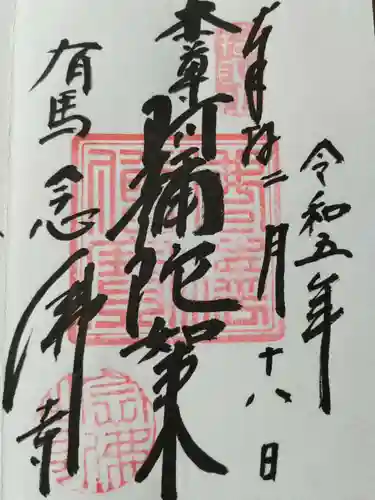 令和五年
奉拝二月十八日
本尊阿弥陀如来
有馬念佛寺